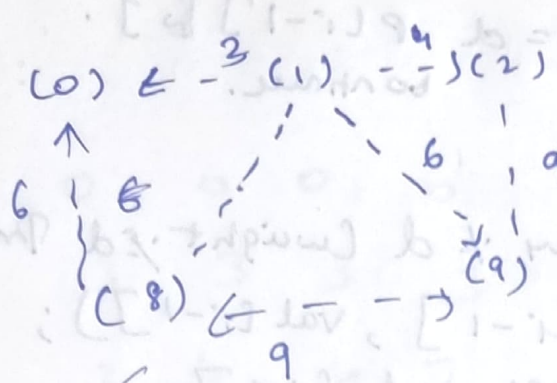 (0) ← - 3 (1) - 4 - → (2)
6 6 6
(8) (9)
9